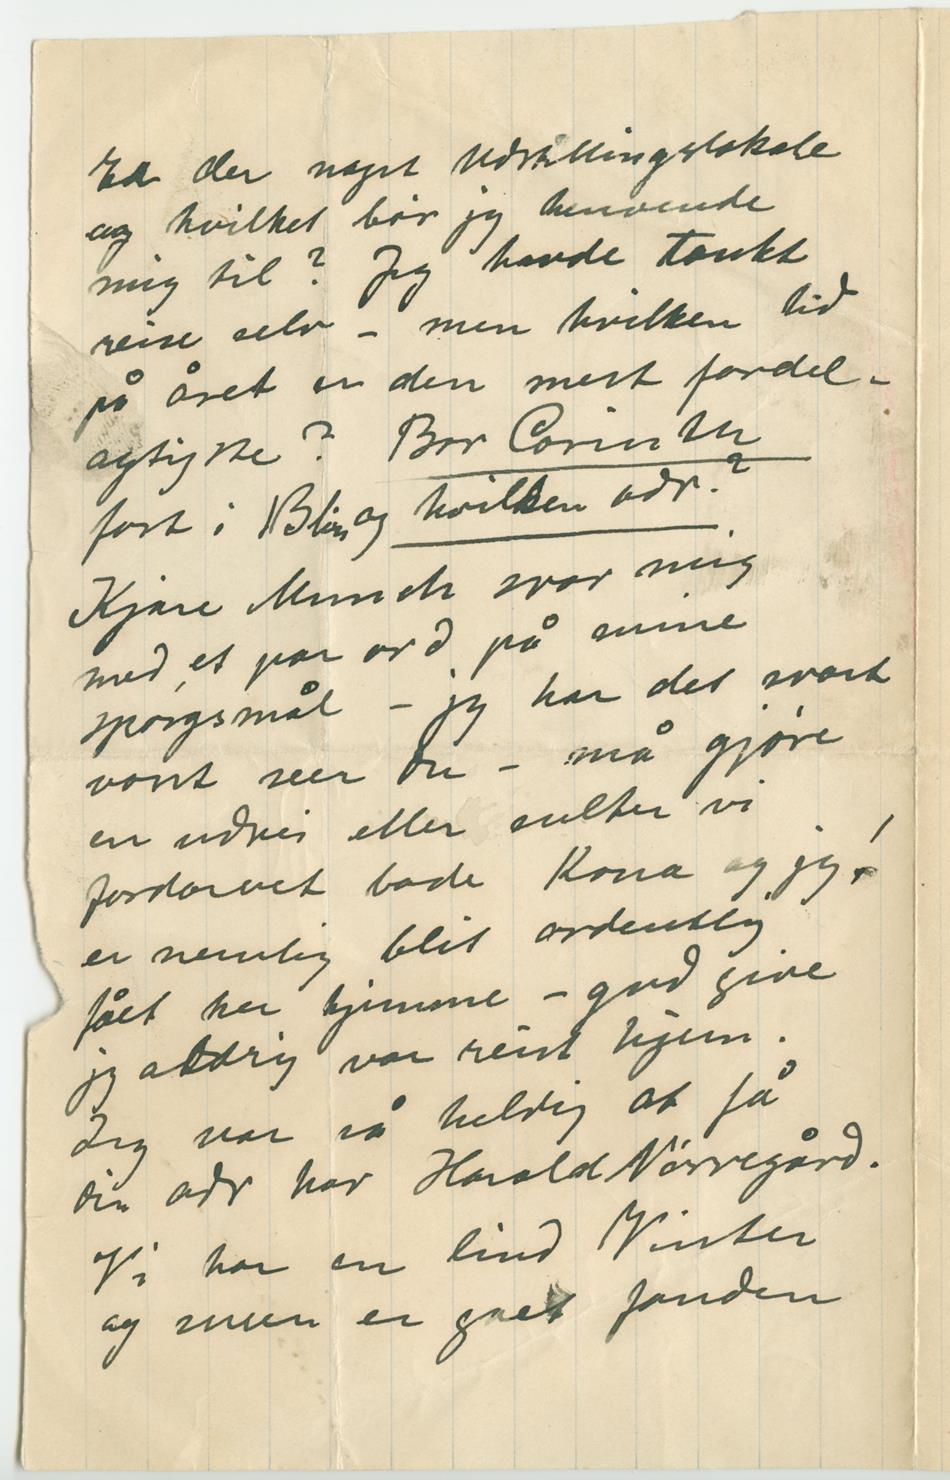 Er der noget Udstillingslokale
og hvilket bør jeg henvende
mig til? Jeg havde tænkt
reise selv – men hvilken tid
på året er den mest fordel-
agtigste? Bor Corinth
fort i Blin og hvilken adr.?
Kjære Munch svar mig
med et par ord på mine
spørgsmål – jeg har det svært
vont seer du – må gjøre
en udvei eller sulter vi
fordærvet både Kona og jeg!
er nemlig blit ordentlig
fået her hjemme – gud give
jeg aldrig var reist hjem.
Jeg var så heldig at få
din adr hos Harald Nörregård.
Vi har en lind Vinter
og sneen er gået fanden